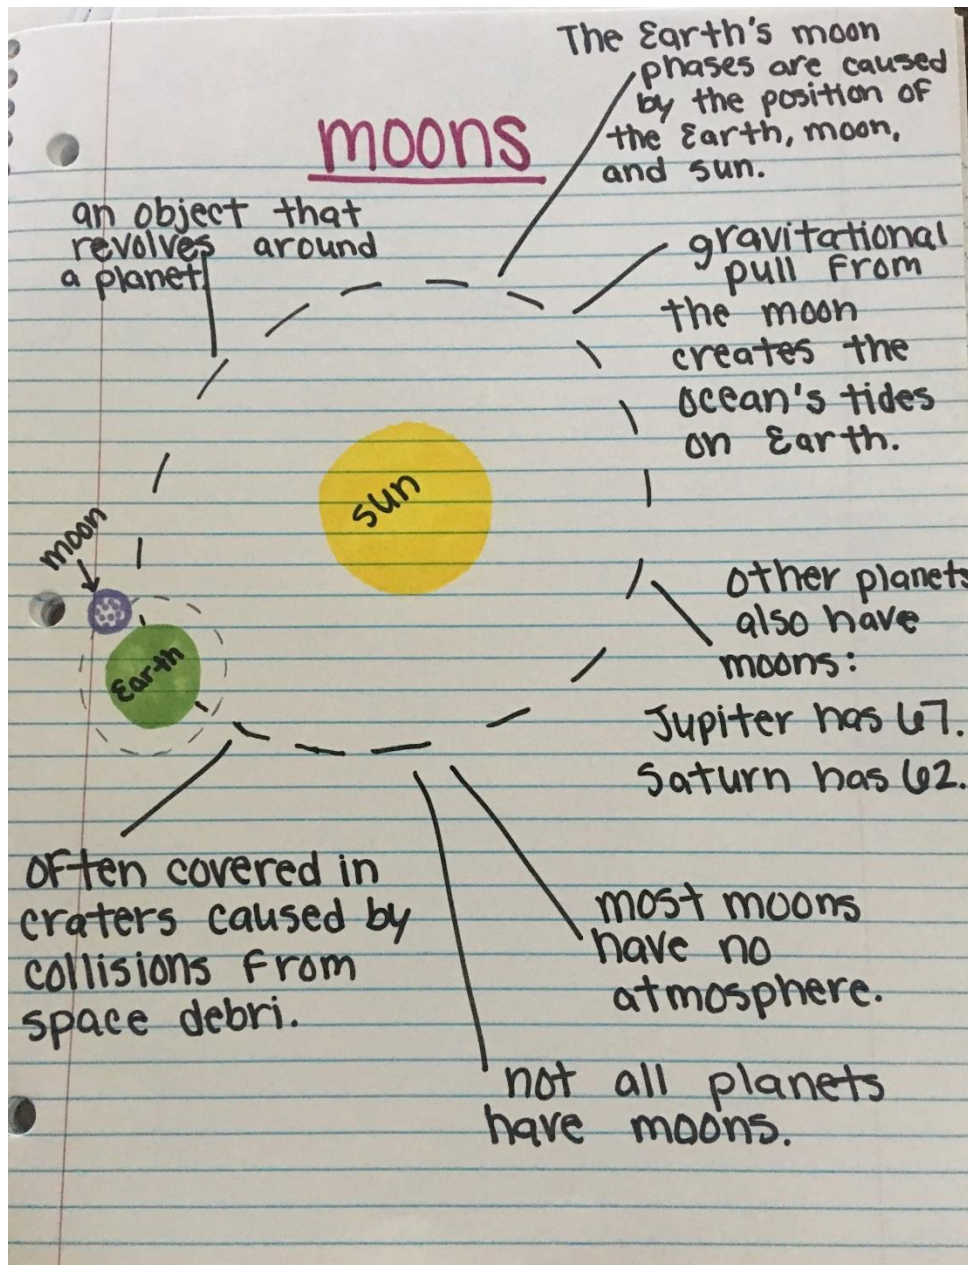 The Earth's moon
phases are caused
by the position of
the Earth, moon,
and sun.
moons
an object that
revolves around
a planet
gravitational
pull from
the moon
creates the
ocean's tides
on Earth.
sun
moon
Earth
other planets
also have
moons:
Jupiter has 67.
Saturn has 62.
often covered in
craters caused by
collisions from
space debri.
most moons
have no
atmosphere.
not all planets
have moons.